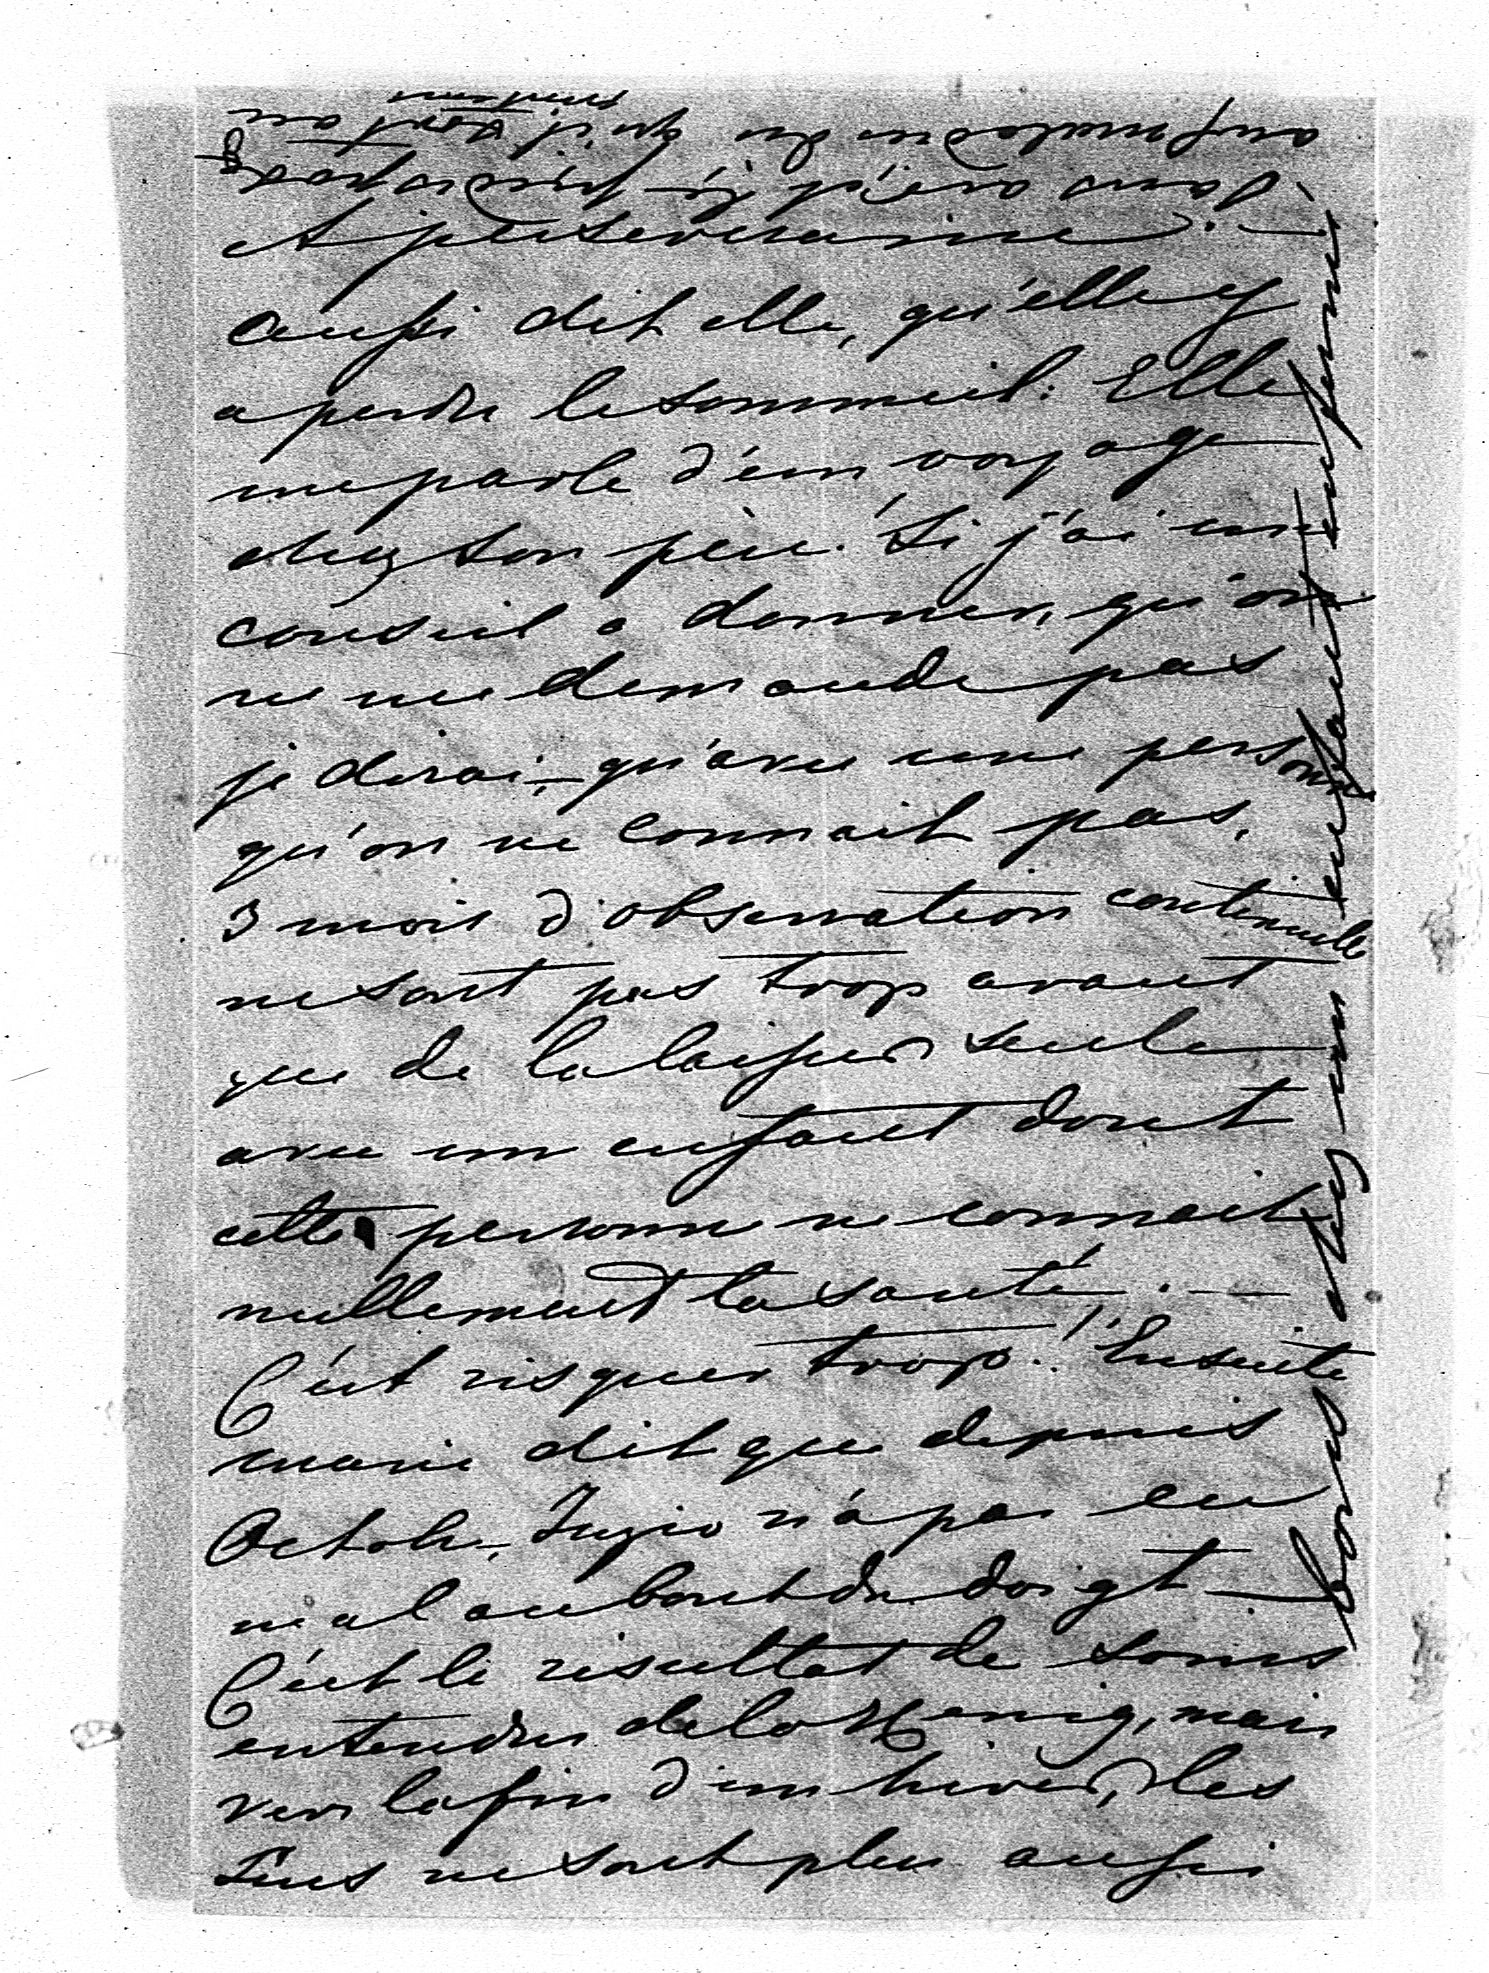 et persévérance. —
Aussi dit elle, qu'elle y
a perdu le sommeil. Elle
me parle d'un voyage
chez son père. Si j'ai un
conseil a donner, qu'on
ne me demande pas
je dirai, qu'avec une personne
qu'on ne connait pas,
3 mois d'observation continuelle
ne sont pas trop avant
que de la laisser seule
avec un enfant dont
cette personne ne connait
nullement la santé. —
C'est risquer trop! Ensuite
marie dit que depuis
Octobr. n'a pas eu
mal au bout du doigt —
C'est le résultat de soins
entendus de la mais
vers la fin d'un hiver, les
ne sont plus aussi
bons chez un enfant